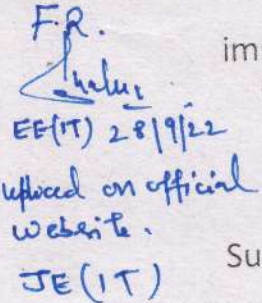 F.R.
im
EE(IT) 28/9/22
upload on official
website.
Su
JE (IT)